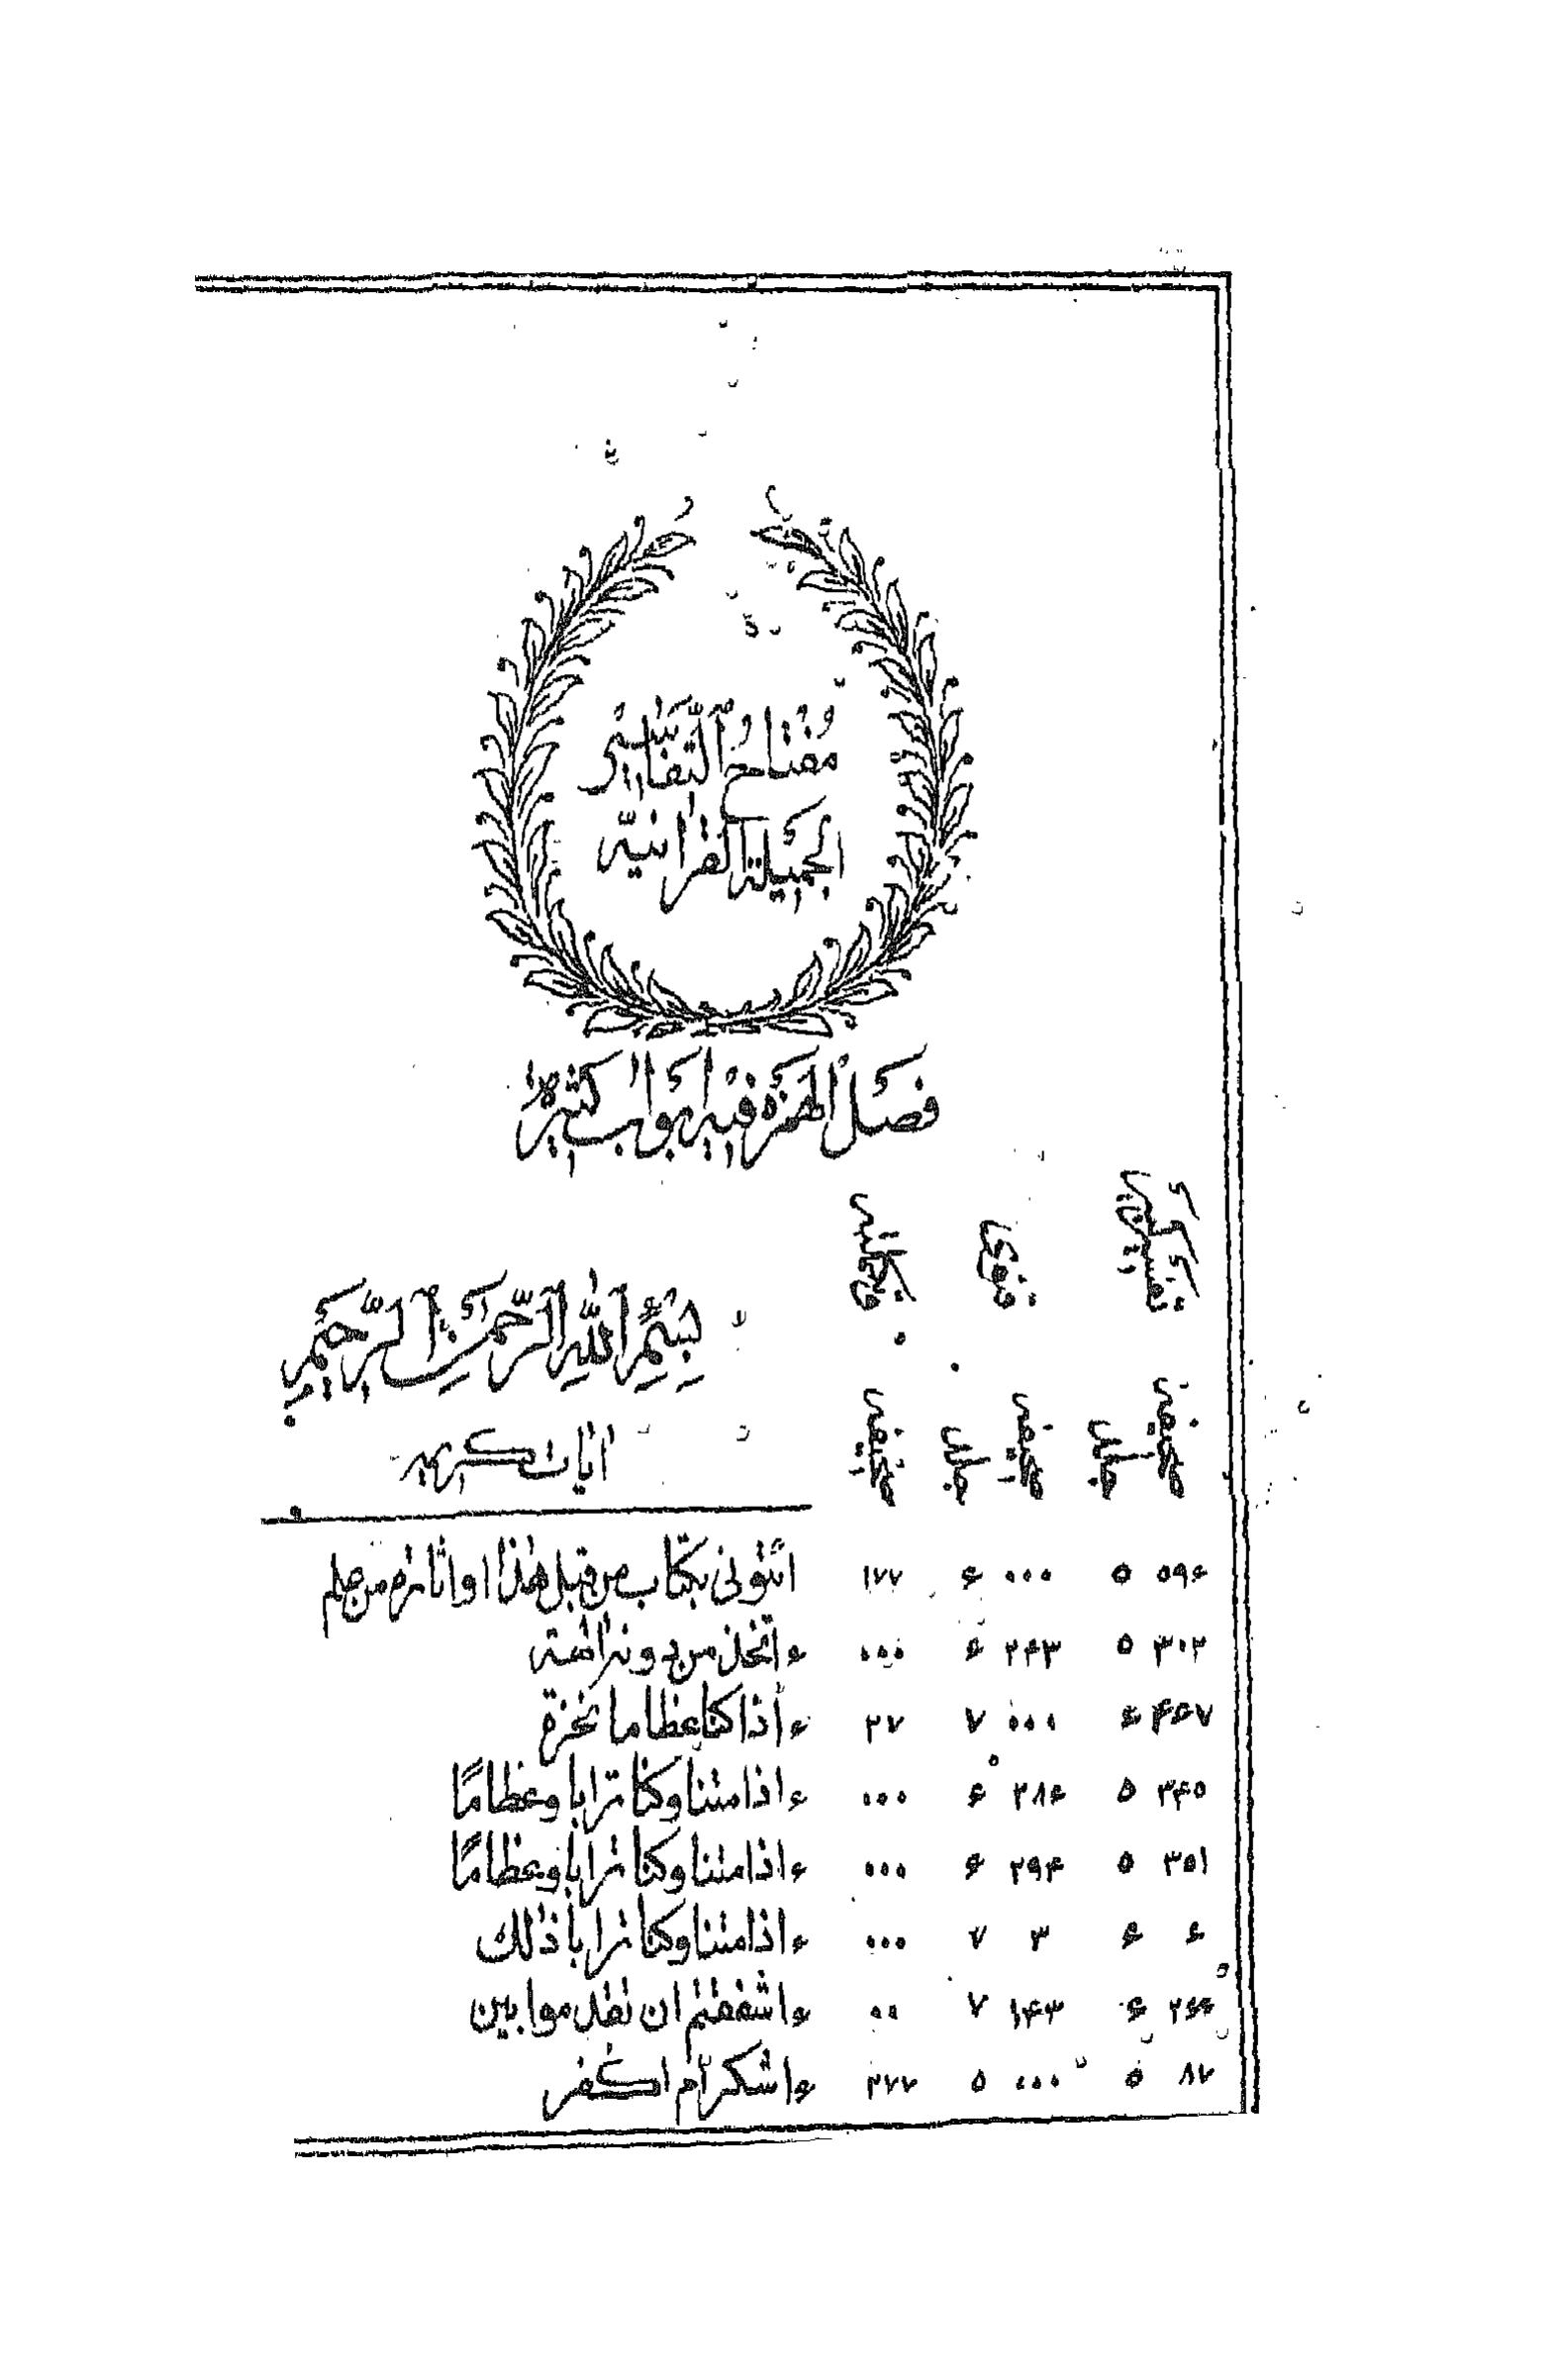 مُفْتَاحُ التَّفَاسِيْرِ
الْجَمِيْلَةِ الْقُرْاٰنِيَّه
فَصْلُ الْهَمْزَه فِيْهِ اَبْوَابٌ كَثِيْرَهٌ
تفسير كبير
بِسْمِ اللّٰهِ الرَّحْمٰنِ الرَّحِيْمِ
اٰيات كريمه
۵۹۶ ۵ ۰۰۰ ۶ ۱۷۷ ائتونى بكتاب من قبل هٰذا او اثارة من علم
۳۰۲ ۵ ۲۴۳ ۶ ۰۰۰ ءاتخذ من دونه اٰلهة
۴۶۷ ۶ ۰۰۰ ۷ ۲۷ ءاذا كنا عظاما نخرة
۳۴۵ ۵ ۲۸۶ ۶ ۰۰۰ ءاذا متنا وكنا ترابا وعظامًا
۳۵۱ ۵ ۲۹۴ ۶ ۰۰۰ ءاذا متنا وكنا ترابا وعظامًا
۶ ۶ ۳ ۷ ۰۰۰ ءاذا متنا وكنا ترابا ذٰلك
۲۶۶ ۶ ۱۴۳ ۷ ۰۰ ءاشفقتم ان تقدموا بين
۸۷ ۵ ۰۰۰ ۵ ۲۷۷ ءاشكر ام اكفر